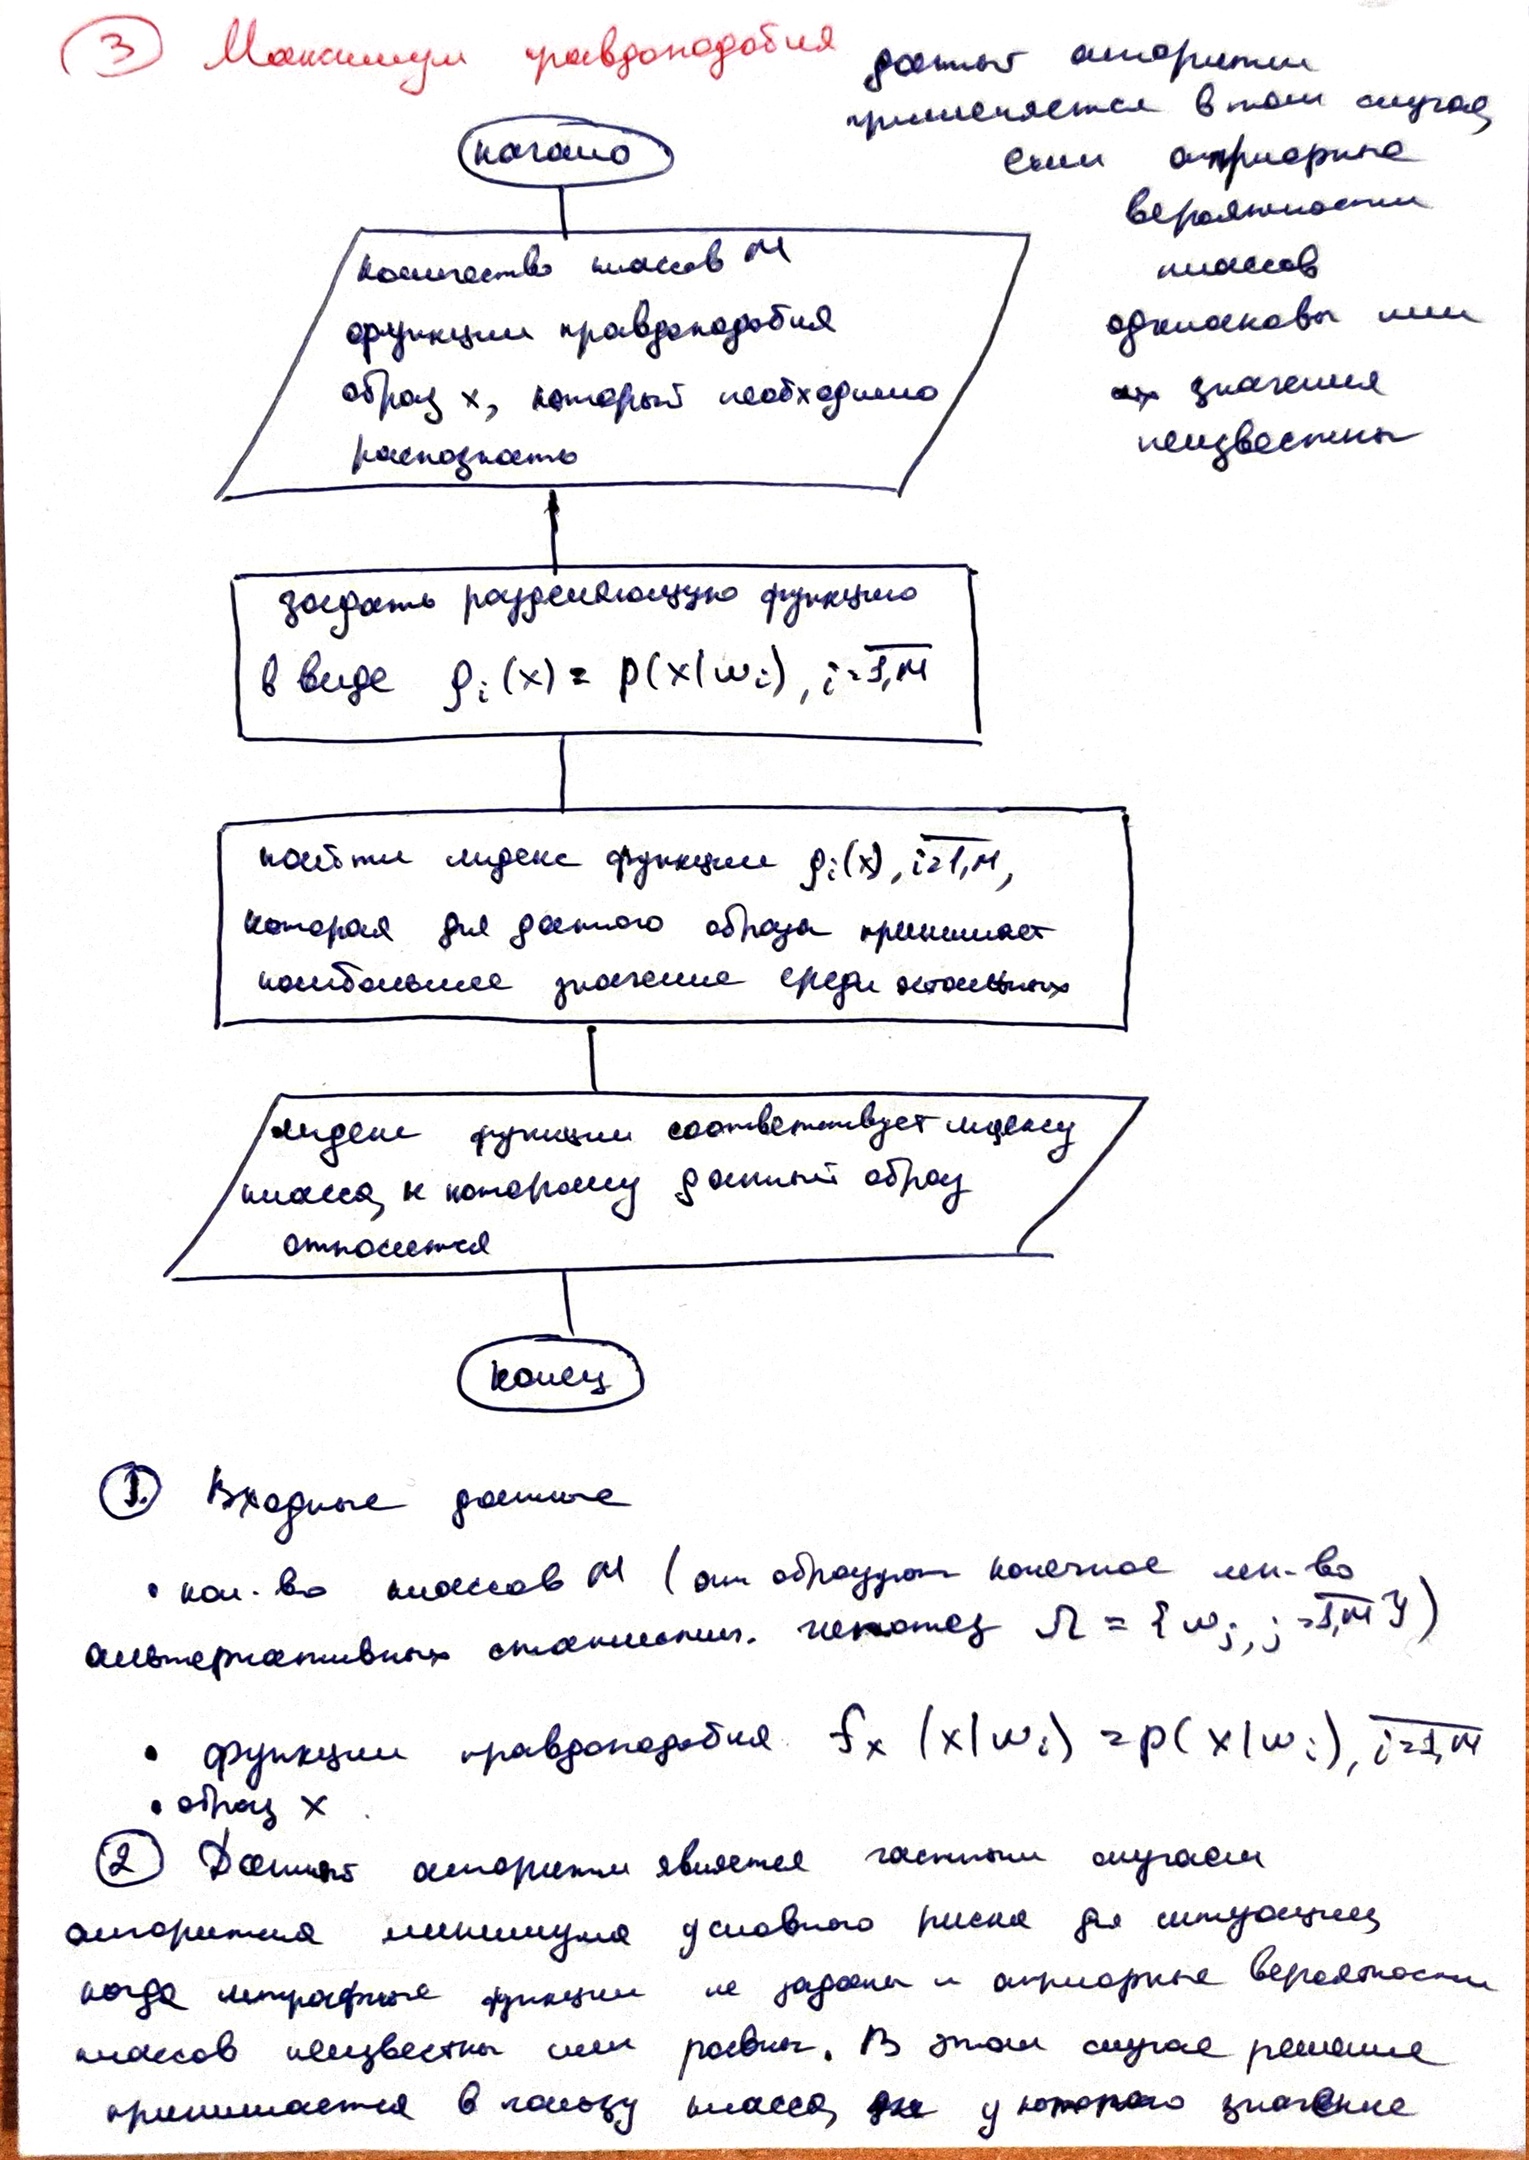 ③ Максимум правдоподобия
данный алгоритм
применяется в том случае,
если априорные
вероятности
классов
одинаковы или
их значения
неизвестны
начало
количество классов M
функции правдоподобия
образ x, который необходимо
распознать
задать разделяющую функцию
в виде ρᵢ(x) = p(x|wᵢ), i=1,M
найти индекс функции ρᵢ(x), i=1,M,
которая для данного образа принимает
наибольшее значение среди остальных
индекс функции соответствует индексу
класса, к которому данный образ
относится
конец
① Входные данные
• кол-во классов M (они образуют конечное мн-во
альтернативных статистич. гипотез Ω = {wⱼ, j=1,M})
• функции правдоподобия fₓ(x|wᵢ) = p(x|wᵢ), i=1,M
• образ x
② Данный алгоритм является частным случаем
алгоритма минимума условного риска для ситуации,
когда штрафные функции не заданы и априорные вероятности
классов неизвестны или равны. В этом случае решение
принимается в пользу класса, у которого значение